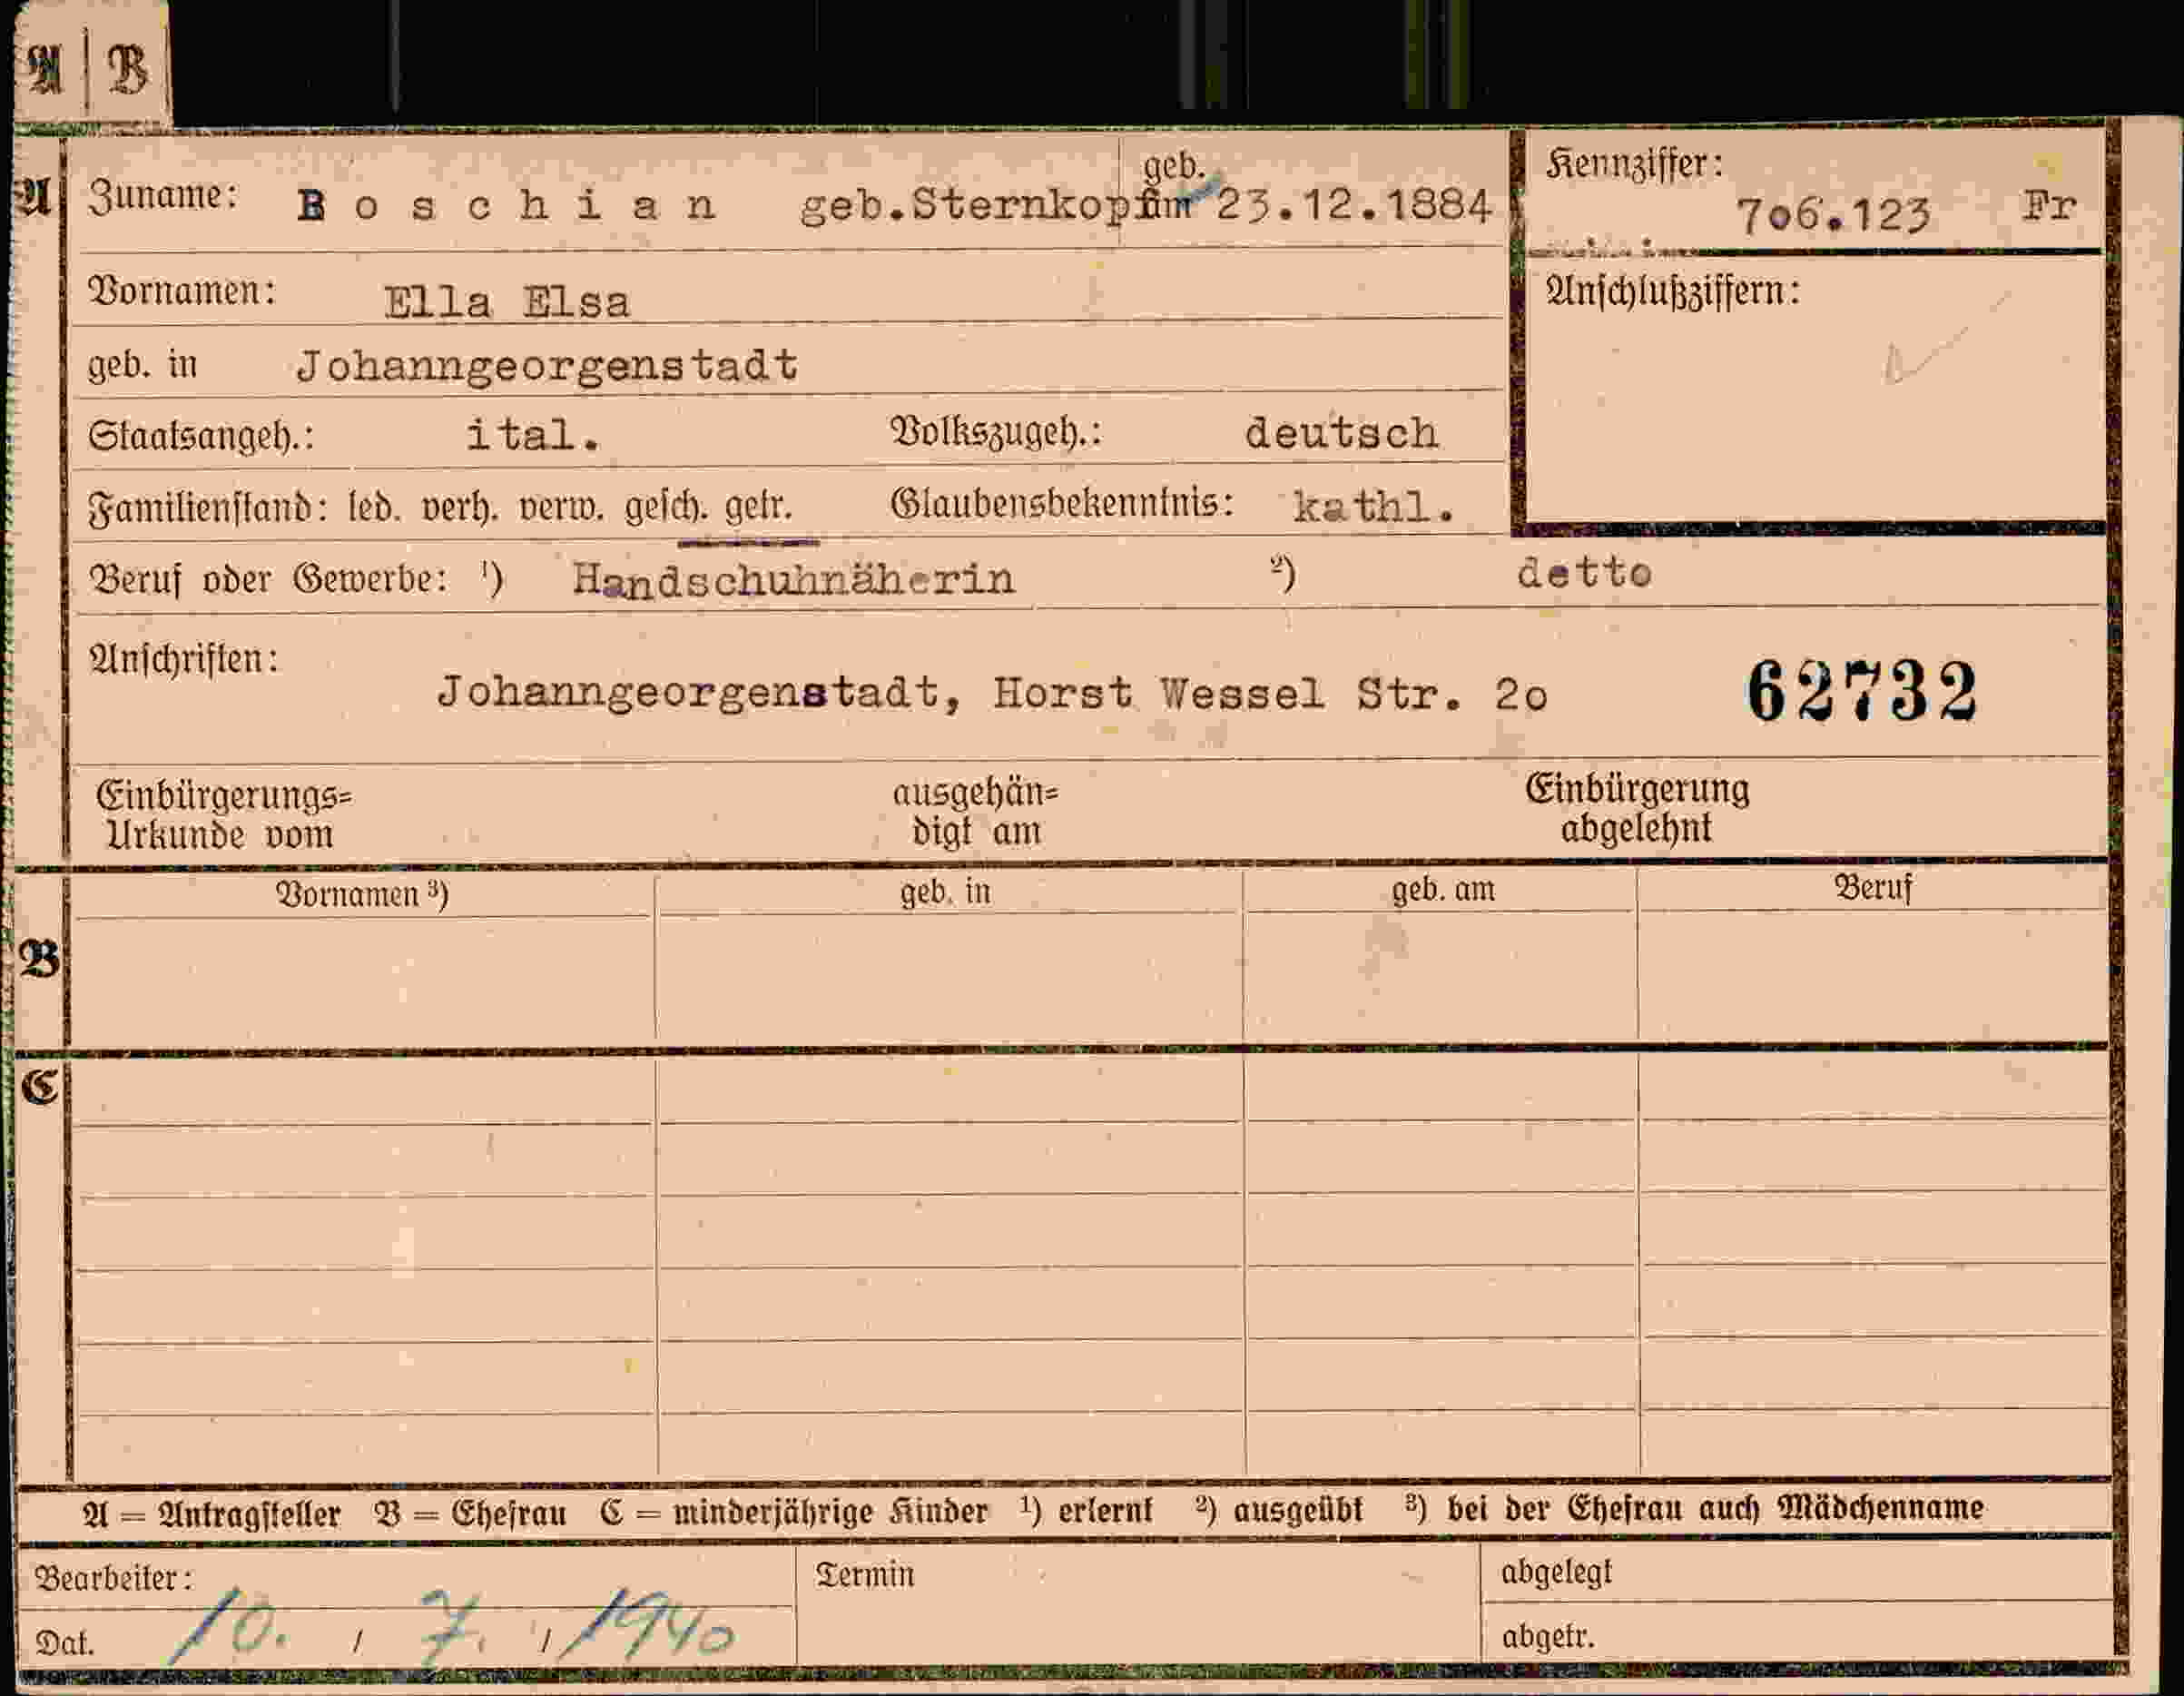 A | B
A Zuname: Boschian geb.Sternkopf geb. am 23.12.1884
Kennziffer: 706.123 Fr
Vornamen: Ella Elsa
Anschlußziffern:
geb. in Johanngeorgenstadt
Staatsangeh.: ital. Volkszugeh.: deutsch
Familienstand: led. verh. verw. gesch. getr. Glaubensbekenntnis: kathl.
Beruf oder Gewerbe: ¹) Handschuhnäherin ²) detto
Anschriften:
Johanngeorgenstadt, Horst Wessel Str. 2o 62732
Einbürgerungs= ausgehän= Einbürgerung
Urkunde vom digt am abgelehnt
Vornamen ³) geb. in geb. am Beruf
B
C
A = Antragsteller B = Ehefrau C = minderjährige Kinder ¹) erlernt ²) ausgeübt ³) bei der Ehefrau auch Mädchenname
Bearbeiter: Termin abgelegt
Dat. 10. / 7. / 1940 abgetr.